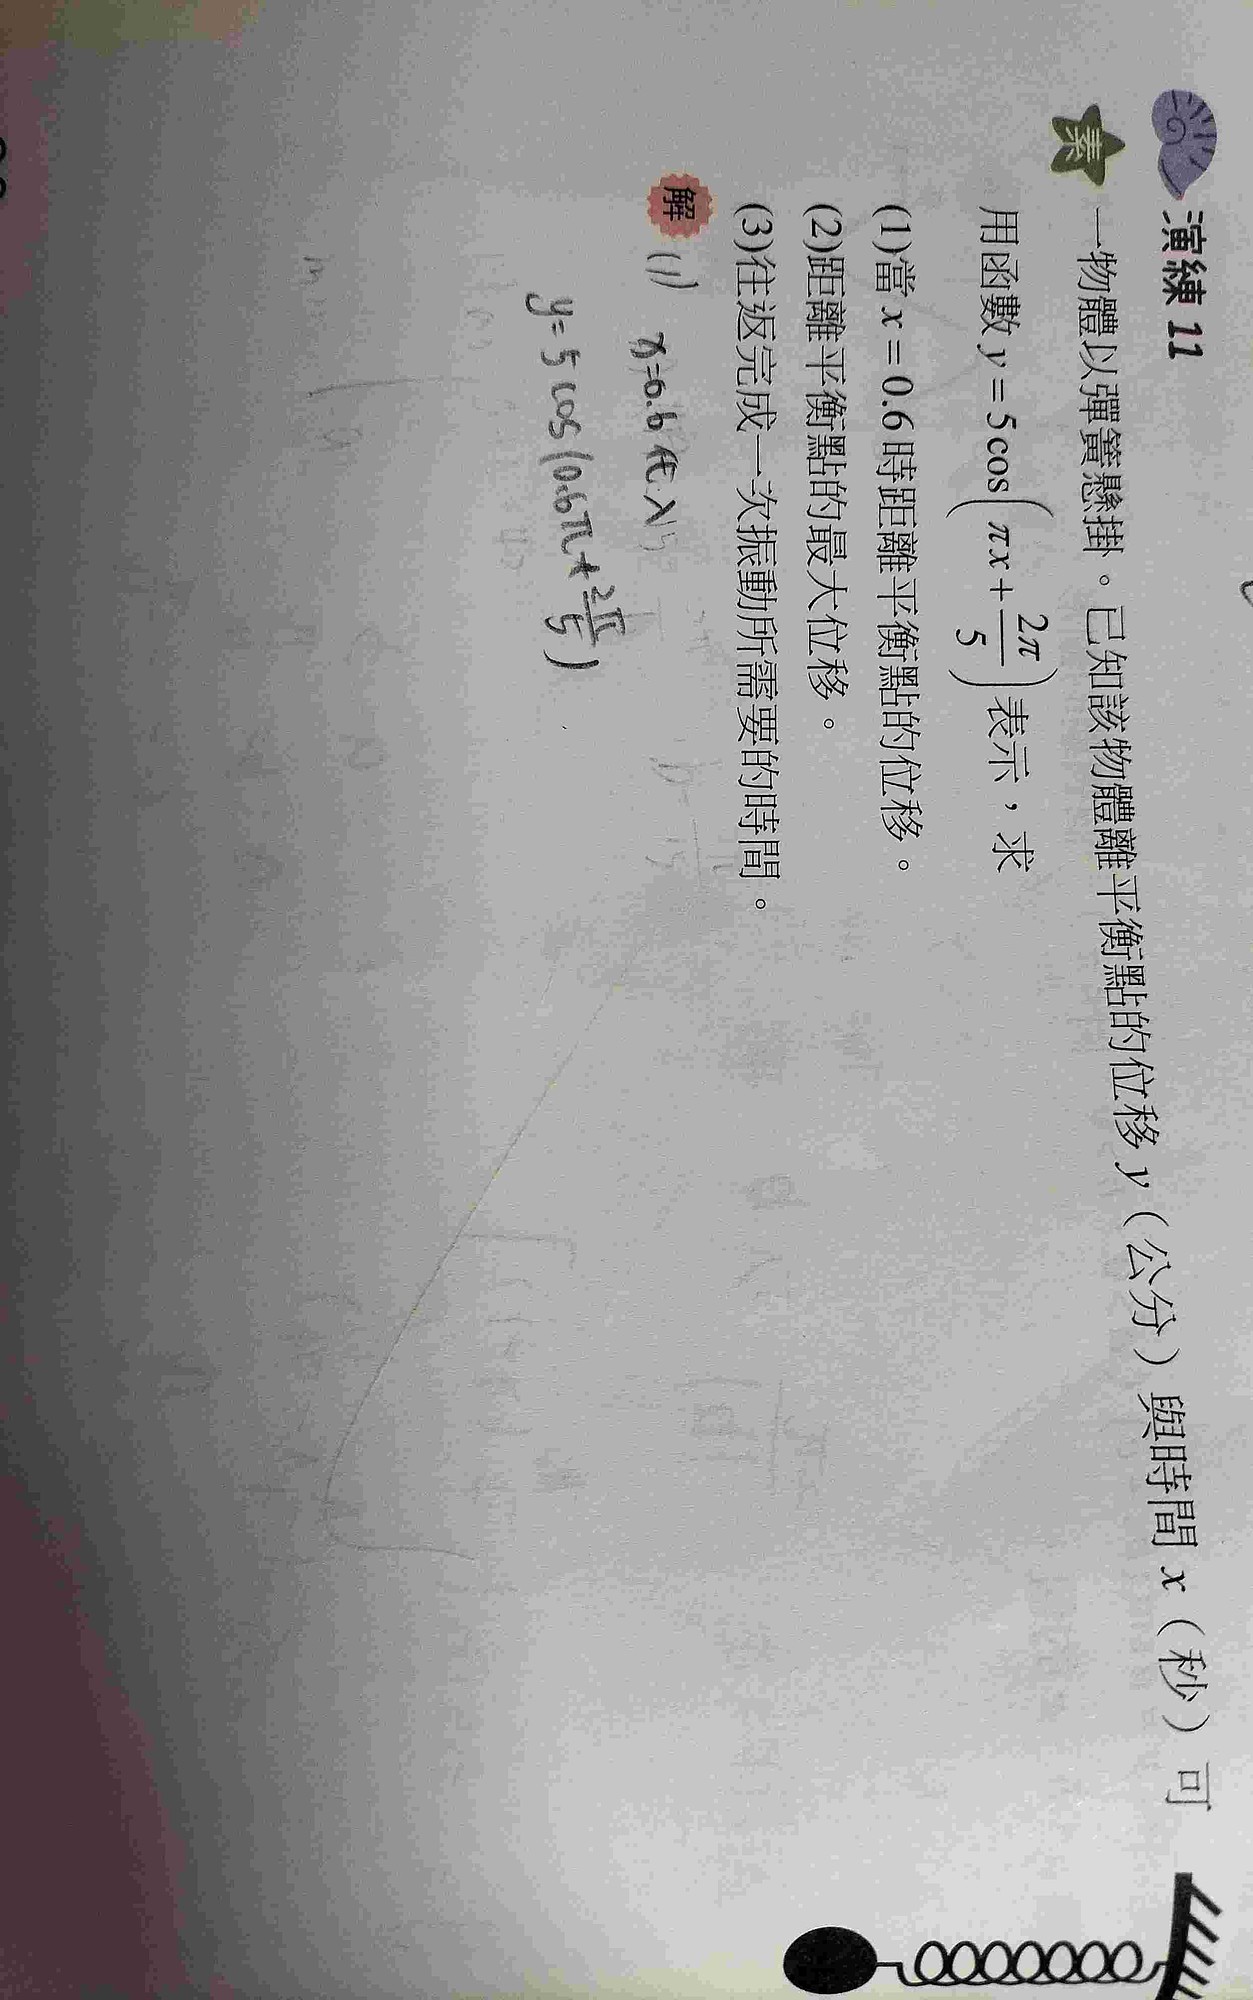 演練 11
素
一物體以彈簧懸掛。已知該物體離平衡點的位移 y（公分）與時間 x（秒）可
用函數 y = 5 cos(πx + 2π/5) 表示，求
(1)當 x = 0.6 時距離平衡點的位移。
(2)距離平衡點的最大位移。
(3)往返完成一次振動所需要的時間。
解 (1) x=0.6 代入
y = 5 cos (0.6π + 2π/5)